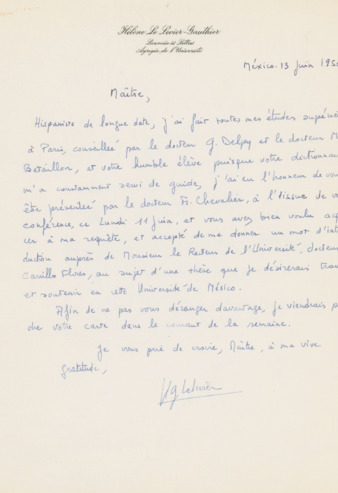 Hélène Le Levier-Gauthier
Licenciée ès Lettres
Agrégée de l'Université
México. 13 juin 195
Maître,
Hispaniste de longue date, j'ai fait toutes mes études supérie
à Paris, conseillée par le docteur G. Delpy et le docteur M
Bataillon, et votre humble élève puisque votre dictionnai
m'a constamment servi de guide, j'ai eu l'honneur de vous
être présentée par le docteur Fr. Chevalier, à l'issue de vo
conférence, ce Lundi 11 juin, et vous avez bien voulu acqu
cer à ma requête, et accepté de me donner un mot d'int
duction auprès de Monsieur le Recteur de l'Université, docteur
Carrillo Flores, au sujet d'une thèse que je désirerais trav
et soutenir en cette Université de México.
Afin de ne pas vous déranger davantage, je viendrais p
dre votre carte dans le courant de la semaine.
Je vous prie de croire, Maître, à ma vive
gratitude,